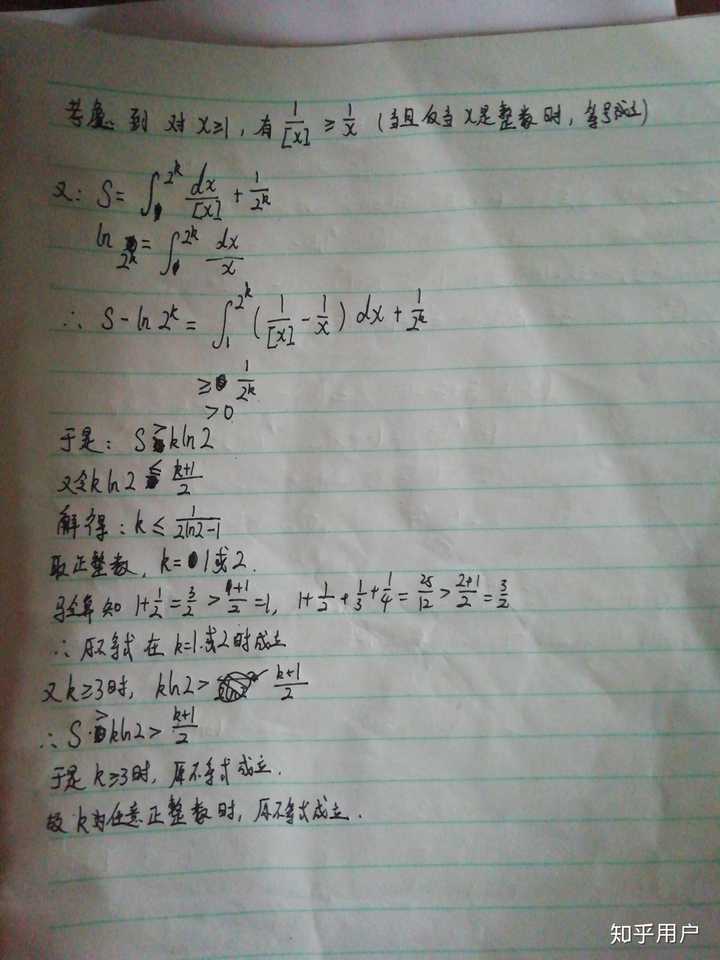 考虑到 对 x≥1, 有 1/[x] ≥ 1/x (当且仅当 x是整数时, 等号成立)
又: S = ∫₁^{2^k} dx/[x] + 1/2^k
ln 2^k = ∫₁^{2^k} dx/x
∴ S - ln 2^k = ∫₁^{2^k} (1/[x] - 1/x) dx + 1/2^k
≥ 1/2^k
> 0
于是: S > k ln 2
又令 k ln 2 ≤ (k+1)/2
解得: k ≤ 1/(2ln2-1)
取正整数, k = 1或2.
验算知 1+1/2 = 3/2 > (1+1)/2 = 1, 1+1/2+1/3+1/4 = 25/12 > (2+1)/2 = 3/2
∴ 原不等式在 k=1或2时成立
又 k≥3时, k ln 2 > (k+1)/2
∴ S > k ln 2 > (k+1)/2
于是 k≥3时, 原不等式成立.
故 k为任意正整数时, 原不等式成立.
知乎用户